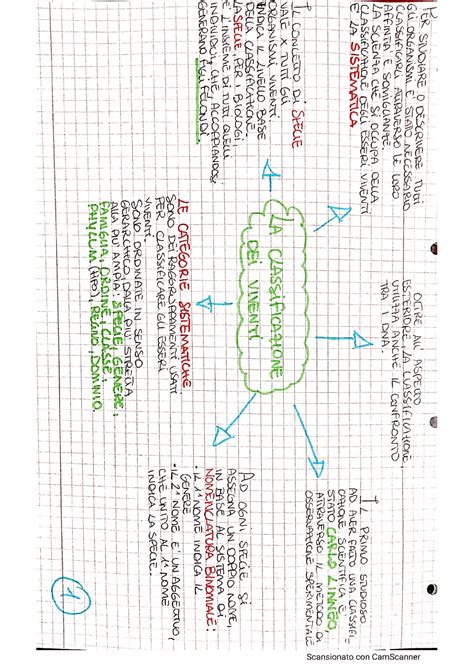 LA CLASSIFICAZIONE
DEI VIVENTI
PER STUDIARE O DESCRIVERE TUTTI
GLI ORGANISMI E' STATO NECESSARIO
CLASSIFICARLI ATTRAVERSO LE LORO
AFFINITÀ E SOMIGLIANZE.
LA SCIENZA CHE SI OCCUPA DELLA
CLASSIFICAZIONE DEGLI ESSERI VIVENTI
È LA SISTEMATICA
OLTRE ALL'ASPETTO
ESTERIORE LA CLASSIFICAZIONE
UTILIZZA ANCHE IL CONFRONTO
TRA I DNA.
IL PRIMO STUDIOSO
AD AVER FATTO UNA CLASSIFI-
CAZIONE SCIENTIFICA È
STATO CARLO LINNEO,
ATTRAVERSO IL METODO DI
OSSERVAZIONE SPERIMENTALE
IL CONCETTO DI SPECIE
VALE X TUTTI GLI
ORGANISMI VIVENTI.
INDICA IL LIVELLO BASE
DELLA CLASSIFICAZIONE.
LA SPECIE PER I BIOLOGI
È L'INSIEME DI TUTTI QUELLI
INDIVIDUI, CHE ACCOPPIANDOSI
GENERANO FIGLI FECONDI.
LE CATEGORIE SISTEMATICHE
SONO DEI RAGGRUPPAMENTI USATI
PER CLASSIFICARE GLI ESSERI
VIVENTI.
SONO ORDINATE IN SENSO
GERARCHICO, DALLA PIU' STRETTA
ALLA PIU' AMPIA: SPECIE, GENERE,
FAMIGLIA, ORDINE, CLASSE,
PHYLUM (TIPO), REGNO, DOMINIO.
AD OGNI SPECIE SI
ASSEGNA UN DOPPIO NOME,
IN BASE AL SISTEMA DI
NOMENCLATURA BINOMIALE:
• IL 1° NOME INDICA IL
GENERE
• IL 2° NOME E' UN AGGETTIVO,
CHE UNITO AL 1° NOME
INDICA LA SPECIE.
1
Scansionato con CamScanner